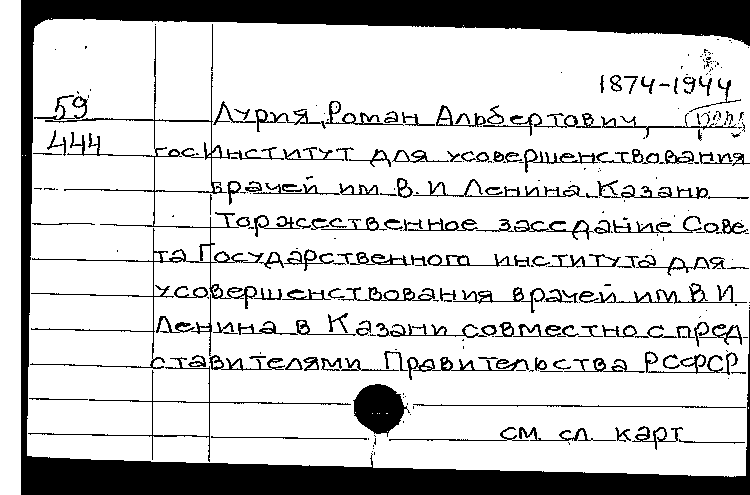 1874-1944
59
444
Лурия, Роман Альбертович, ред
гос. Институт для усовершенствования
врачей им В.И Ленина. Казань
Торжественное заседание Сове
та Государственного института для
усовершенствования врачей им В.И.
Ленина в Казани совместно с пред
ставителями Правительства РСФСР
см. сл. карт